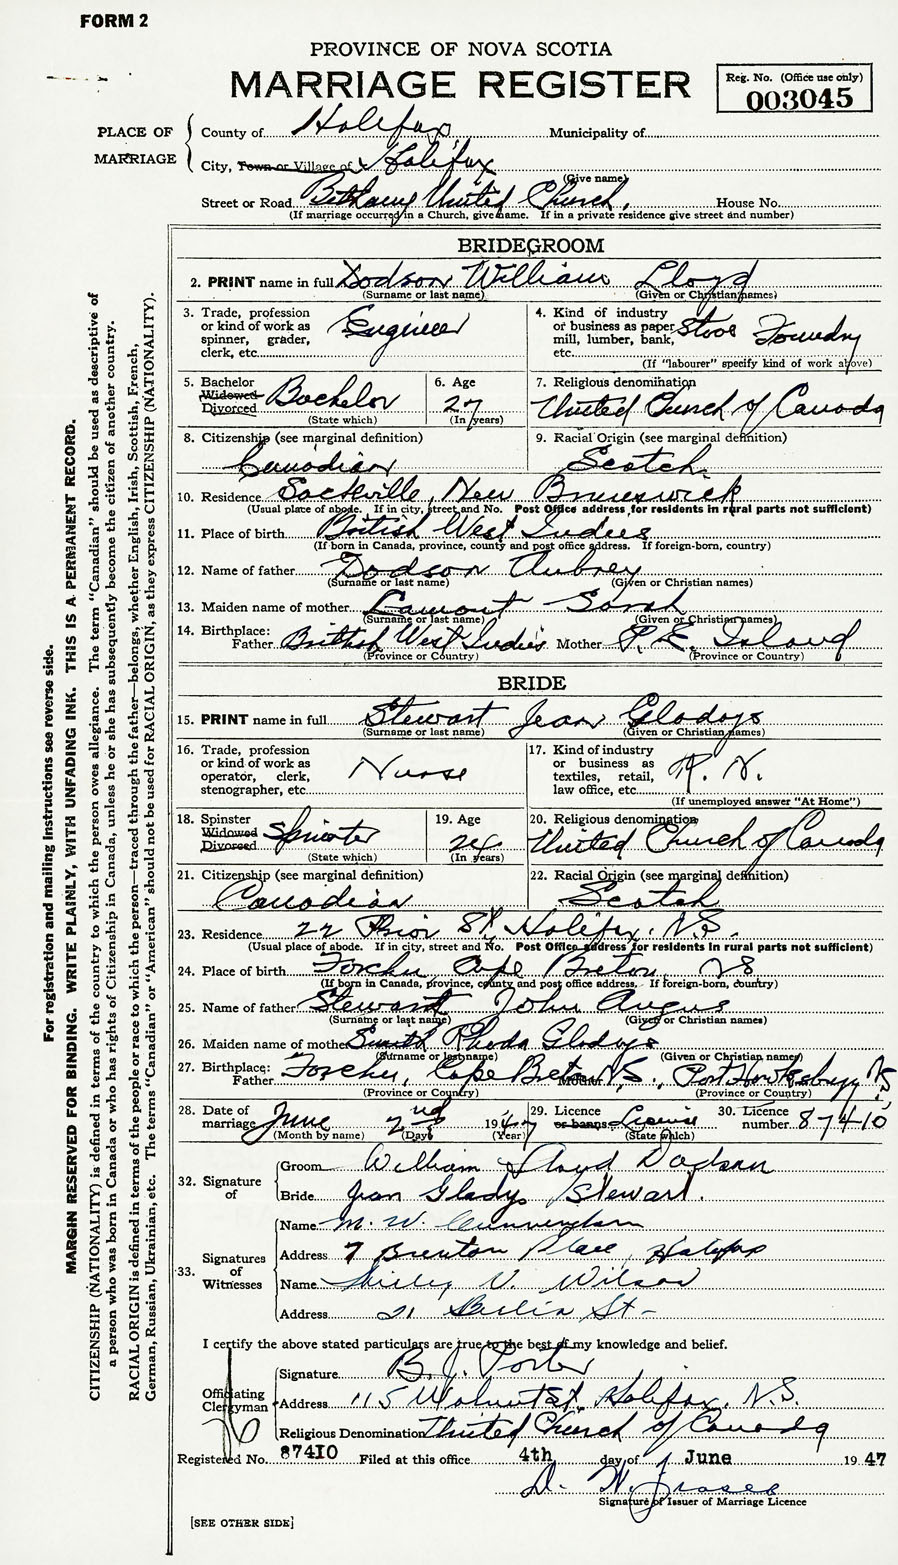 FORM 2
PROVINCE OF NOVA SCOTIA
MARRIAGE REGISTER
Reg. No. (Office use only)
003045
PLACE OF MARRIAGE
County of Halifax Municipality of
City, Town or Village of Halifax
(Give name)
Street or Road Bethany United Church, House No.
(If marriage occurred in a Church, give name. If in a private residence give street and number)
BRIDEGROOM
2. PRINT name in full Dodson William Lloyd
(Surname or last name) (Given or Christian names)
3. Trade, profession or kind of work as spinner, grader, clerk, etc. Engineer
4. Kind of industry or business as paper mill, lumber, bank, etc. Stove Foundry
(If "labourer" specify kind of work above)
5. Bachelor Widowed Divorced Bachelor
(State which)
6. Age 27
(In years)
7. Religious denomination United Church of Canada
8. Citizenship (see marginal definition) Canadian
9. Racial Origin (see marginal definition) Scotch
10. Residence Sackville, New Brunswick
(Usual place of abode. If in city, street and No. Post Office address for residents in rural parts not sufficient)
11. Place of birth British West Indies
(If born in Canada, province, county and post office address. If foreign-born, country)
12. Name of father Dodson Aubrey
(Surname or last name) (Given or Christian names)
13. Maiden name of mother Lamont Sarah
(Surname or last name) (Given or Christian names)
14. Birthplace: Father British West Indies Mother P. E. Island
(Province or Country) (Province or Country)
BRIDE
15. PRINT name in full Stewart Jean Gladys
(Surname or last name) (Given or Christian names)
16. Trade, profession or kind of work as operator, clerk, stenographer, etc. Nurse
17. Kind of industry or business as textiles, retail, law office, etc. R. N.
(If unemployed answer "At Home")
18. Spinster Widowed Divorced Spinster
(State which)
19. Age 24
(In years)
20. Religious denomination United Church of Canada
21. Citizenship (see marginal definition) Canadian
22. Racial Origin (see marginal definition) Scotch
23. Residence 22 Prior St, Halifax, N.S.
(Usual place of abode. If in city, street and No. Post Office address for residents in rural parts not sufficient)
24. Place of birth Forchu, Cape Breton, NS
(If born in Canada, province, county and post office address. If foreign-born, country)
25. Name of father Stewart John Angus
(Surname or last name) (Given or Christian names)
26. Maiden name of mother Smith Rhoda Gladys
(Surname or last name) (Given or Christian names)
27. Birthplace: Father Forchu, Cape Breton N.S., Mother Port Hawksbury N.S.
(Province or Country) (Province or Country)
28. Date of marriage June 2nd 1947
(Month by name) (Day) (Year)
29. Licence or banns License
(State which)
30. Licence number 87410
32. Signature of
Groom William Lloyd Dodson
Bride Jean Gladys Stewart.
33. Signatures of Witnesses
Name M. W. Cunningham
Address 7 Brenton Place, Halifax
Name Shirley V. Wilson
Address 21 Berlin St-
I certify the above stated particulars are true to the best of my knowledge and belief.
Officiating Clergyman
Signature B. J. Porter
Address 115 Walnut St. Halifax, N.S.
Religious Denomination United Church of Canada
Registered No. 87410 Filed at this office 4th day of June 1947
Signature of Issuer of Marriage Licence
[SEE OTHER SIDE]
For registration and mailing instructions see reverse side.
MARGIN RESERVED FOR BINDING. WRITE PLAINLY, WITH UNFADING INK. THIS IS A PERMANENT RECORD.
CITIZENSHIP (NATIONALITY) is defined in terms of the country to which the person owes allegiance. The term "Canadian" should be used as descriptive of
a person who was born in Canada or who has rights of Citizenship in Canada, unless he or she has subsequently become the citizen of another country.
RACIAL ORIGIN is defined in terms of the people or race to which the person—traced through the father—belongs, whether English, Irish, Scottish, French,
German, Russian, Ukrainian, etc. The terms "Canadian" or "American" should not be used for RACIAL ORIGIN, as they express CITIZENSHIP (NATIONALITY).